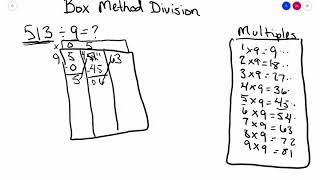 Box Method Division
513 ÷ 9 = ?
x 0 5
9 5 63
-0 45
5 06
Multiples
1 x 9 = 9
2 x 9 = 18
3 x 9 = 27
4 x 9 = 36
5 x 9 = 45
6 x 9 = 54
7 x 9 = 63
8 x 9 = 72
9 x 9 = 81